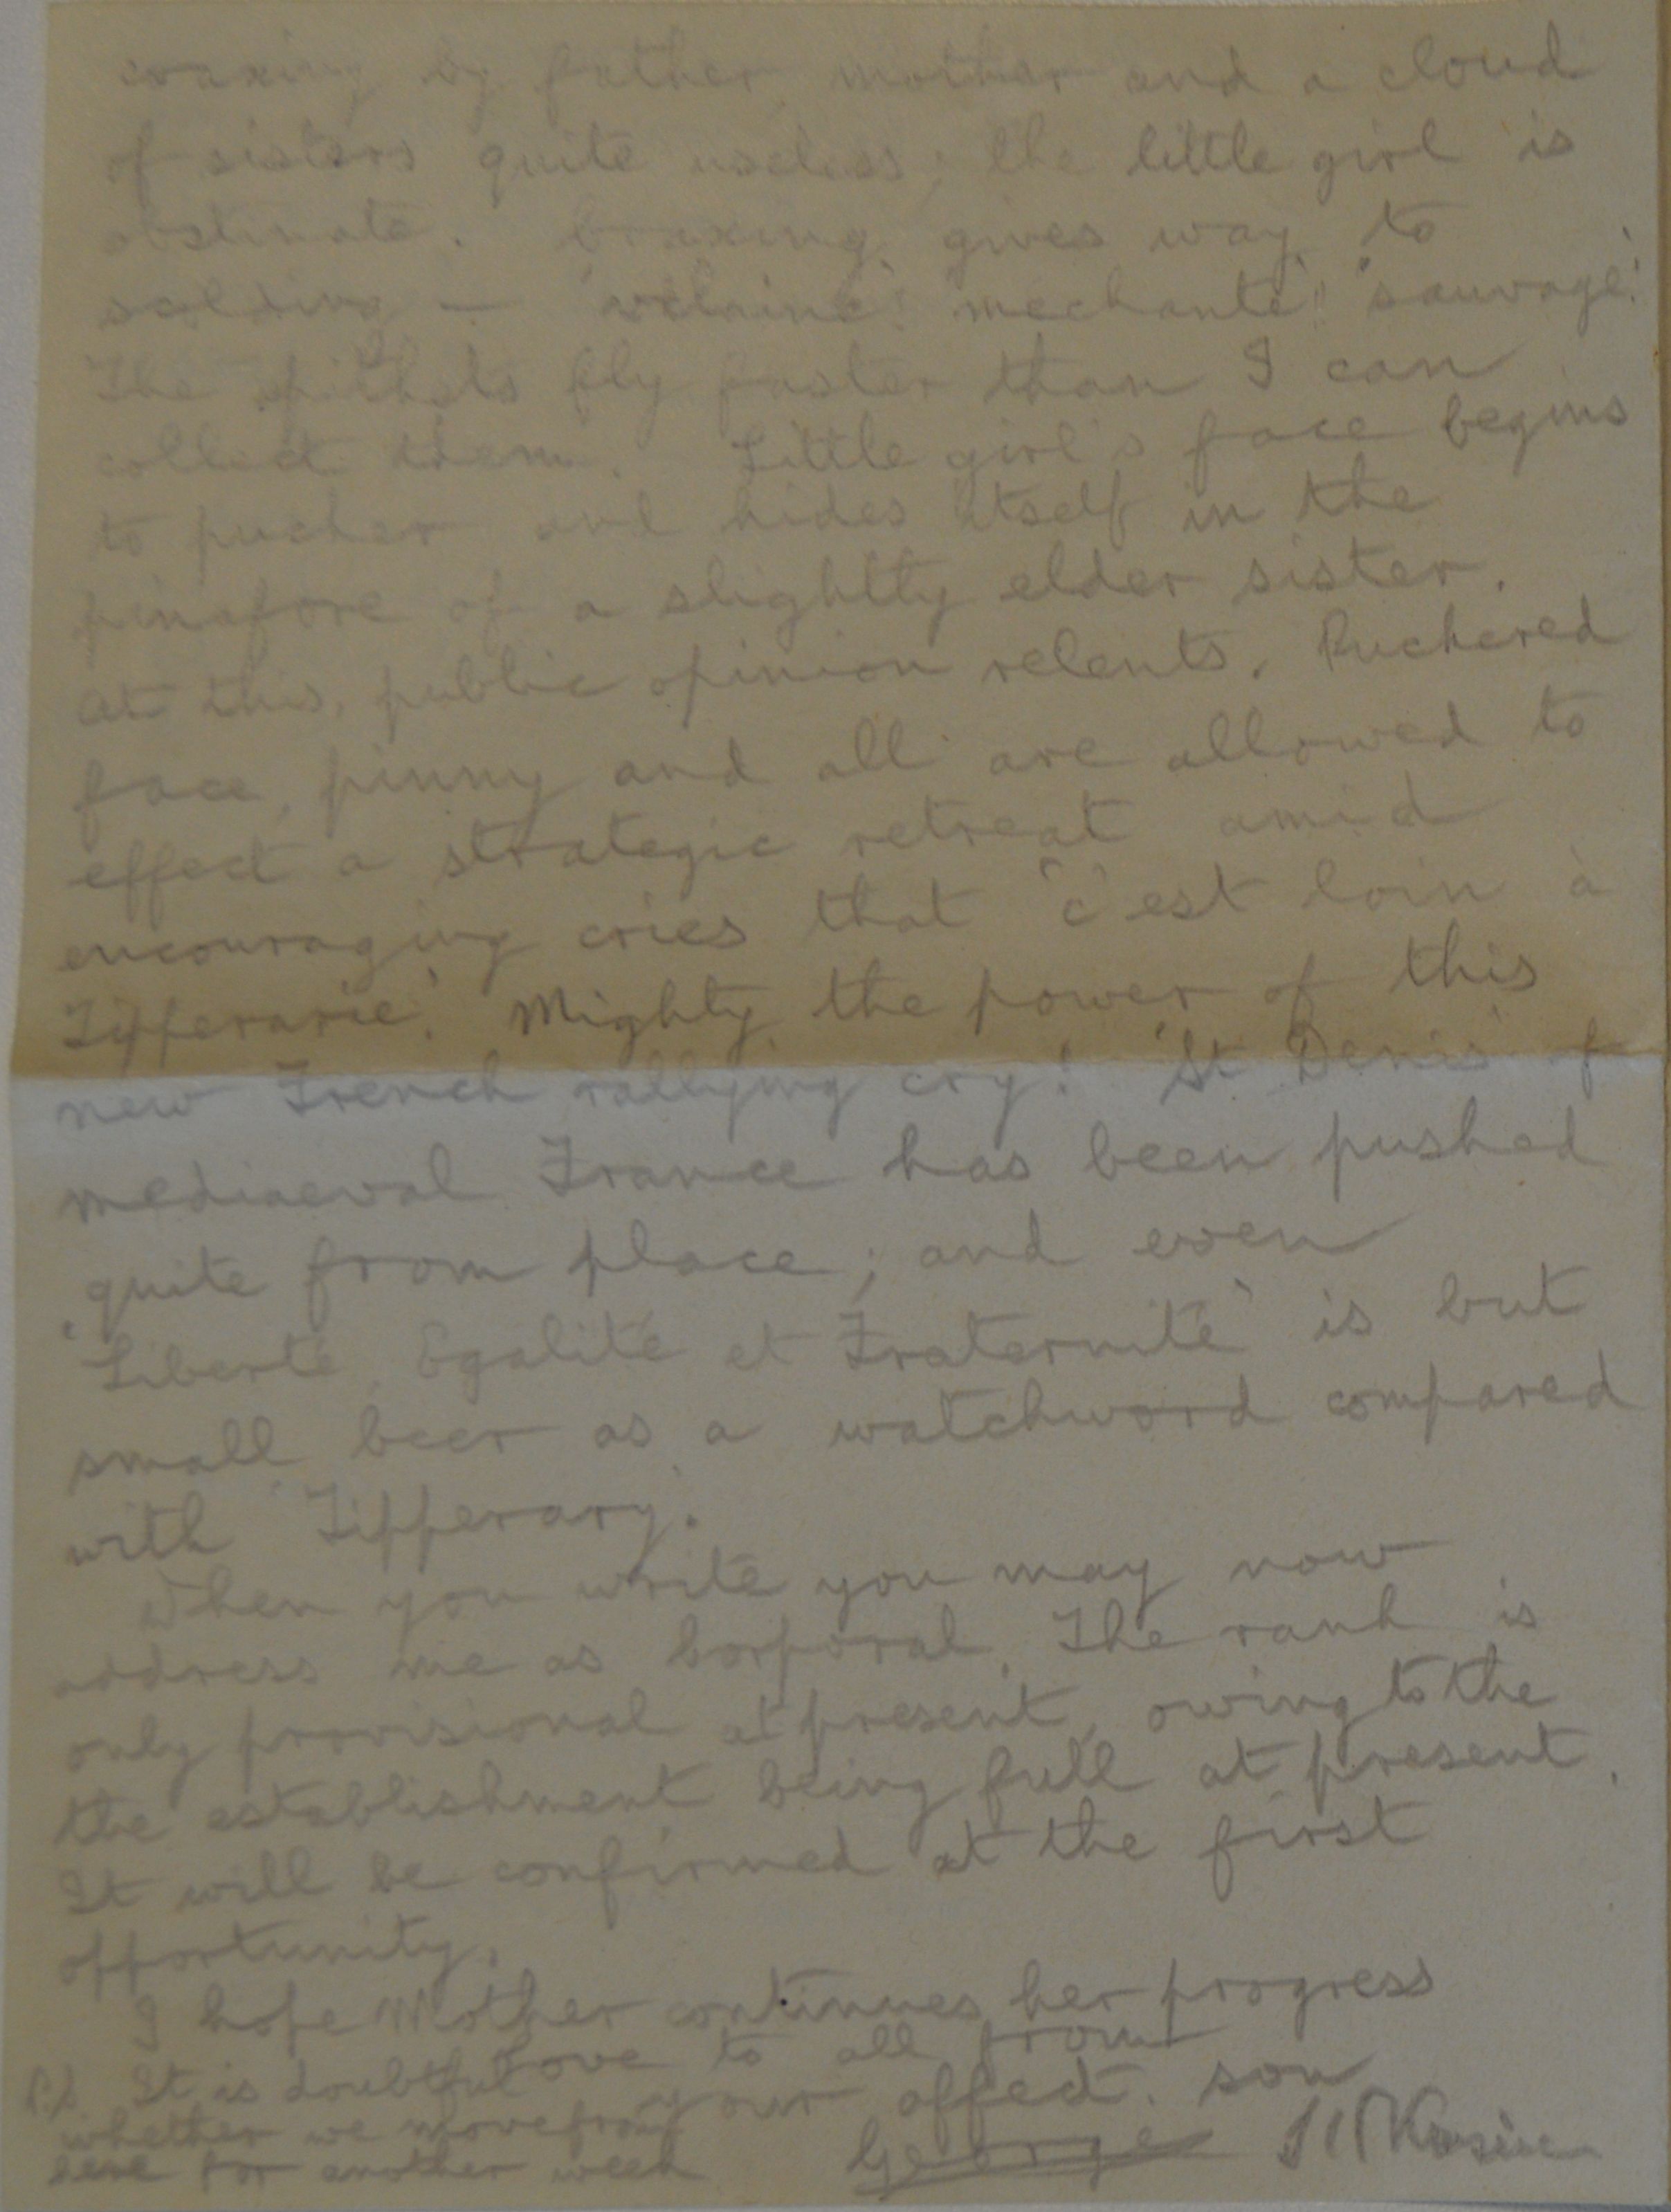 coaxing by father, mother and a cloud
of sisters quite useless; the little girl is
obstinate. Coaxing gives way to
scolding — 'vilaine'! 'mechante'! 'sauvage'!
The epithets fly faster than I can
collect them. Little girl's face begins
to pucker and hides itself in the
pinafore of a slightly elder sister.
At this, public opinion relents. Puckered
face, pinny and all are allowed to
effect a strategic retreat amid
encouraging cries that 'c'est loin à
Tipperarie'. Mighty the power of this
new French rallying cry! 'St Denis' of
mediaeval France has been pushed
quite from place; and even
'Liberté, Egalité et Fraternité' is but
small beer as a watchword compared
with 'Tipperary'.
When you write you may now
address me as Corporal. The rank is
only provisional at present, owing to the
the establishment being full at present.
It will be confirmed at the first
opportunity.
I hope Mother continues her progress
Love to all from
your affect. son
George
P.S. It is doubtful
whether we move from
here for another week